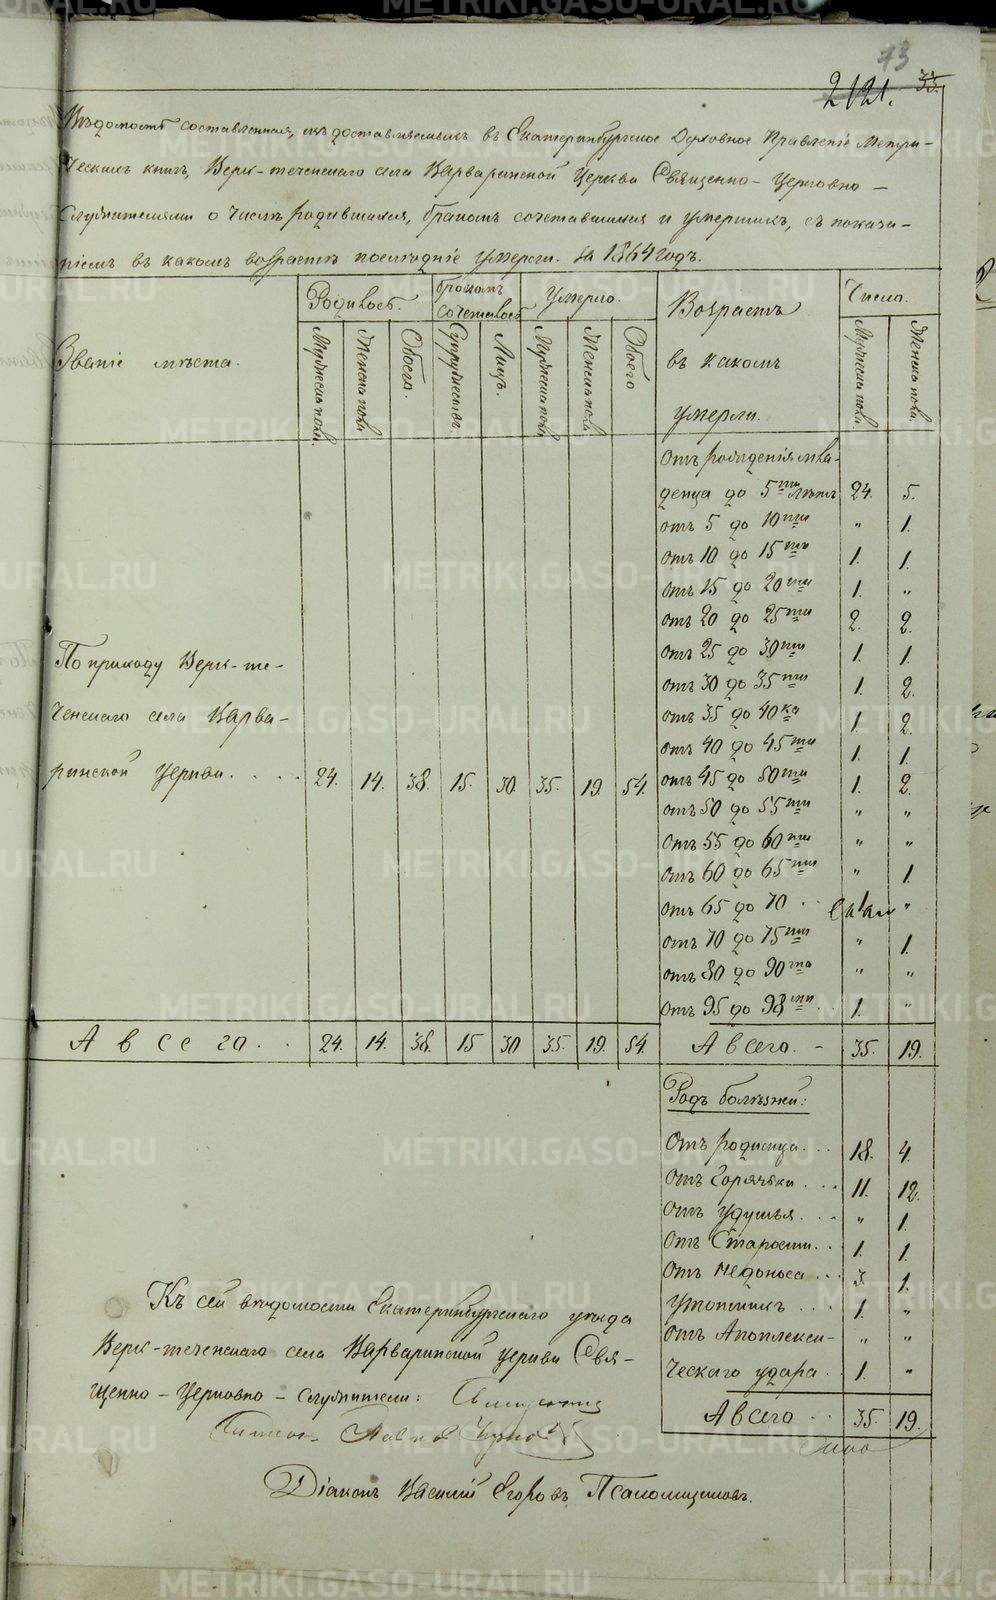 73
2121. 33.
Вѣдомость составленная, изъ доставляемыхъ въ Екатеринбургское Духовное Правленіе Метри-
ческихъ книгъ, Верх-теченскаго села Варваринской Церкви Священно-Церковно-
служителями о числѣ родившихся, бракомъ сочетавшихся и умершихъ, съ показа-
ніемъ въ какомъ возрастѣ послѣдніе умерли. За 1864 годъ.
Званіе мѣста. Родилось. Бракомъ сочеталось Умерло. Возрастъ въ какомъ умерли. Число.
Мужеска пола. Женска пола Обоего. Супружествъ. Лицъ. Мужеска пола Женска пола Обоего Мужеска пола Женска пола.
Отъ рожденія мла-
денца до 5ти лѣтъ 24. 5.
отъ 5 до 10ти " 1.
отъ 10 до 15ть 1. 1.
отъ 15 до 20ти 1. "
отъ 20 до 25ти 2. 2.
отъ 25 до 30ти 1. 1.
отъ 30 до 35ти 1. 2.
отъ 35 до 40ка 1. 2.
отъ 40 до 45ти 1. 1.
отъ 45 до 50ти 1. 2.
отъ 50 до 55ти " "
отъ 55 до 60ти " "
отъ 60 до 65ти " 1.
отъ 65 до 70 "
отъ 70 до 75ти " 1.
отъ 80 до 90то " "
отъ 95 до 98ти 1. "
По приходу Верх-те-
ченскаго села Варва-
ринской Церкви. . . . 24. 14. 38. 15. 30. 35. 19. 54.
А всего. . 24. 14. 38. 15 30 35. 19. 54. А всего. - 35. 19.
Родъ болѣзней:
Отъ родимца. . . 18. 4.
Отъ Горячки . . . 11. 12.
отъ удушья. . . " 1.
отъ Старости. . . 1. 1.
отъ Недоноса . . . 3. 1.
Утопшихъ . . . 1. "
отъ Апоплекси- " "
ческаго удара. . 1. "
А всего . . 35. 19.
Къ сей вѣдомости Екатеринбургскаго уѣзда
Верх-теченскаго села Варваринской Церкви Свя-
щенно-Церковно-служители: Священникъ
Павелъ
Діаконъ Василій Егоровъ Псаломщиковъ.
METRIKI.GASO-URAL.RU